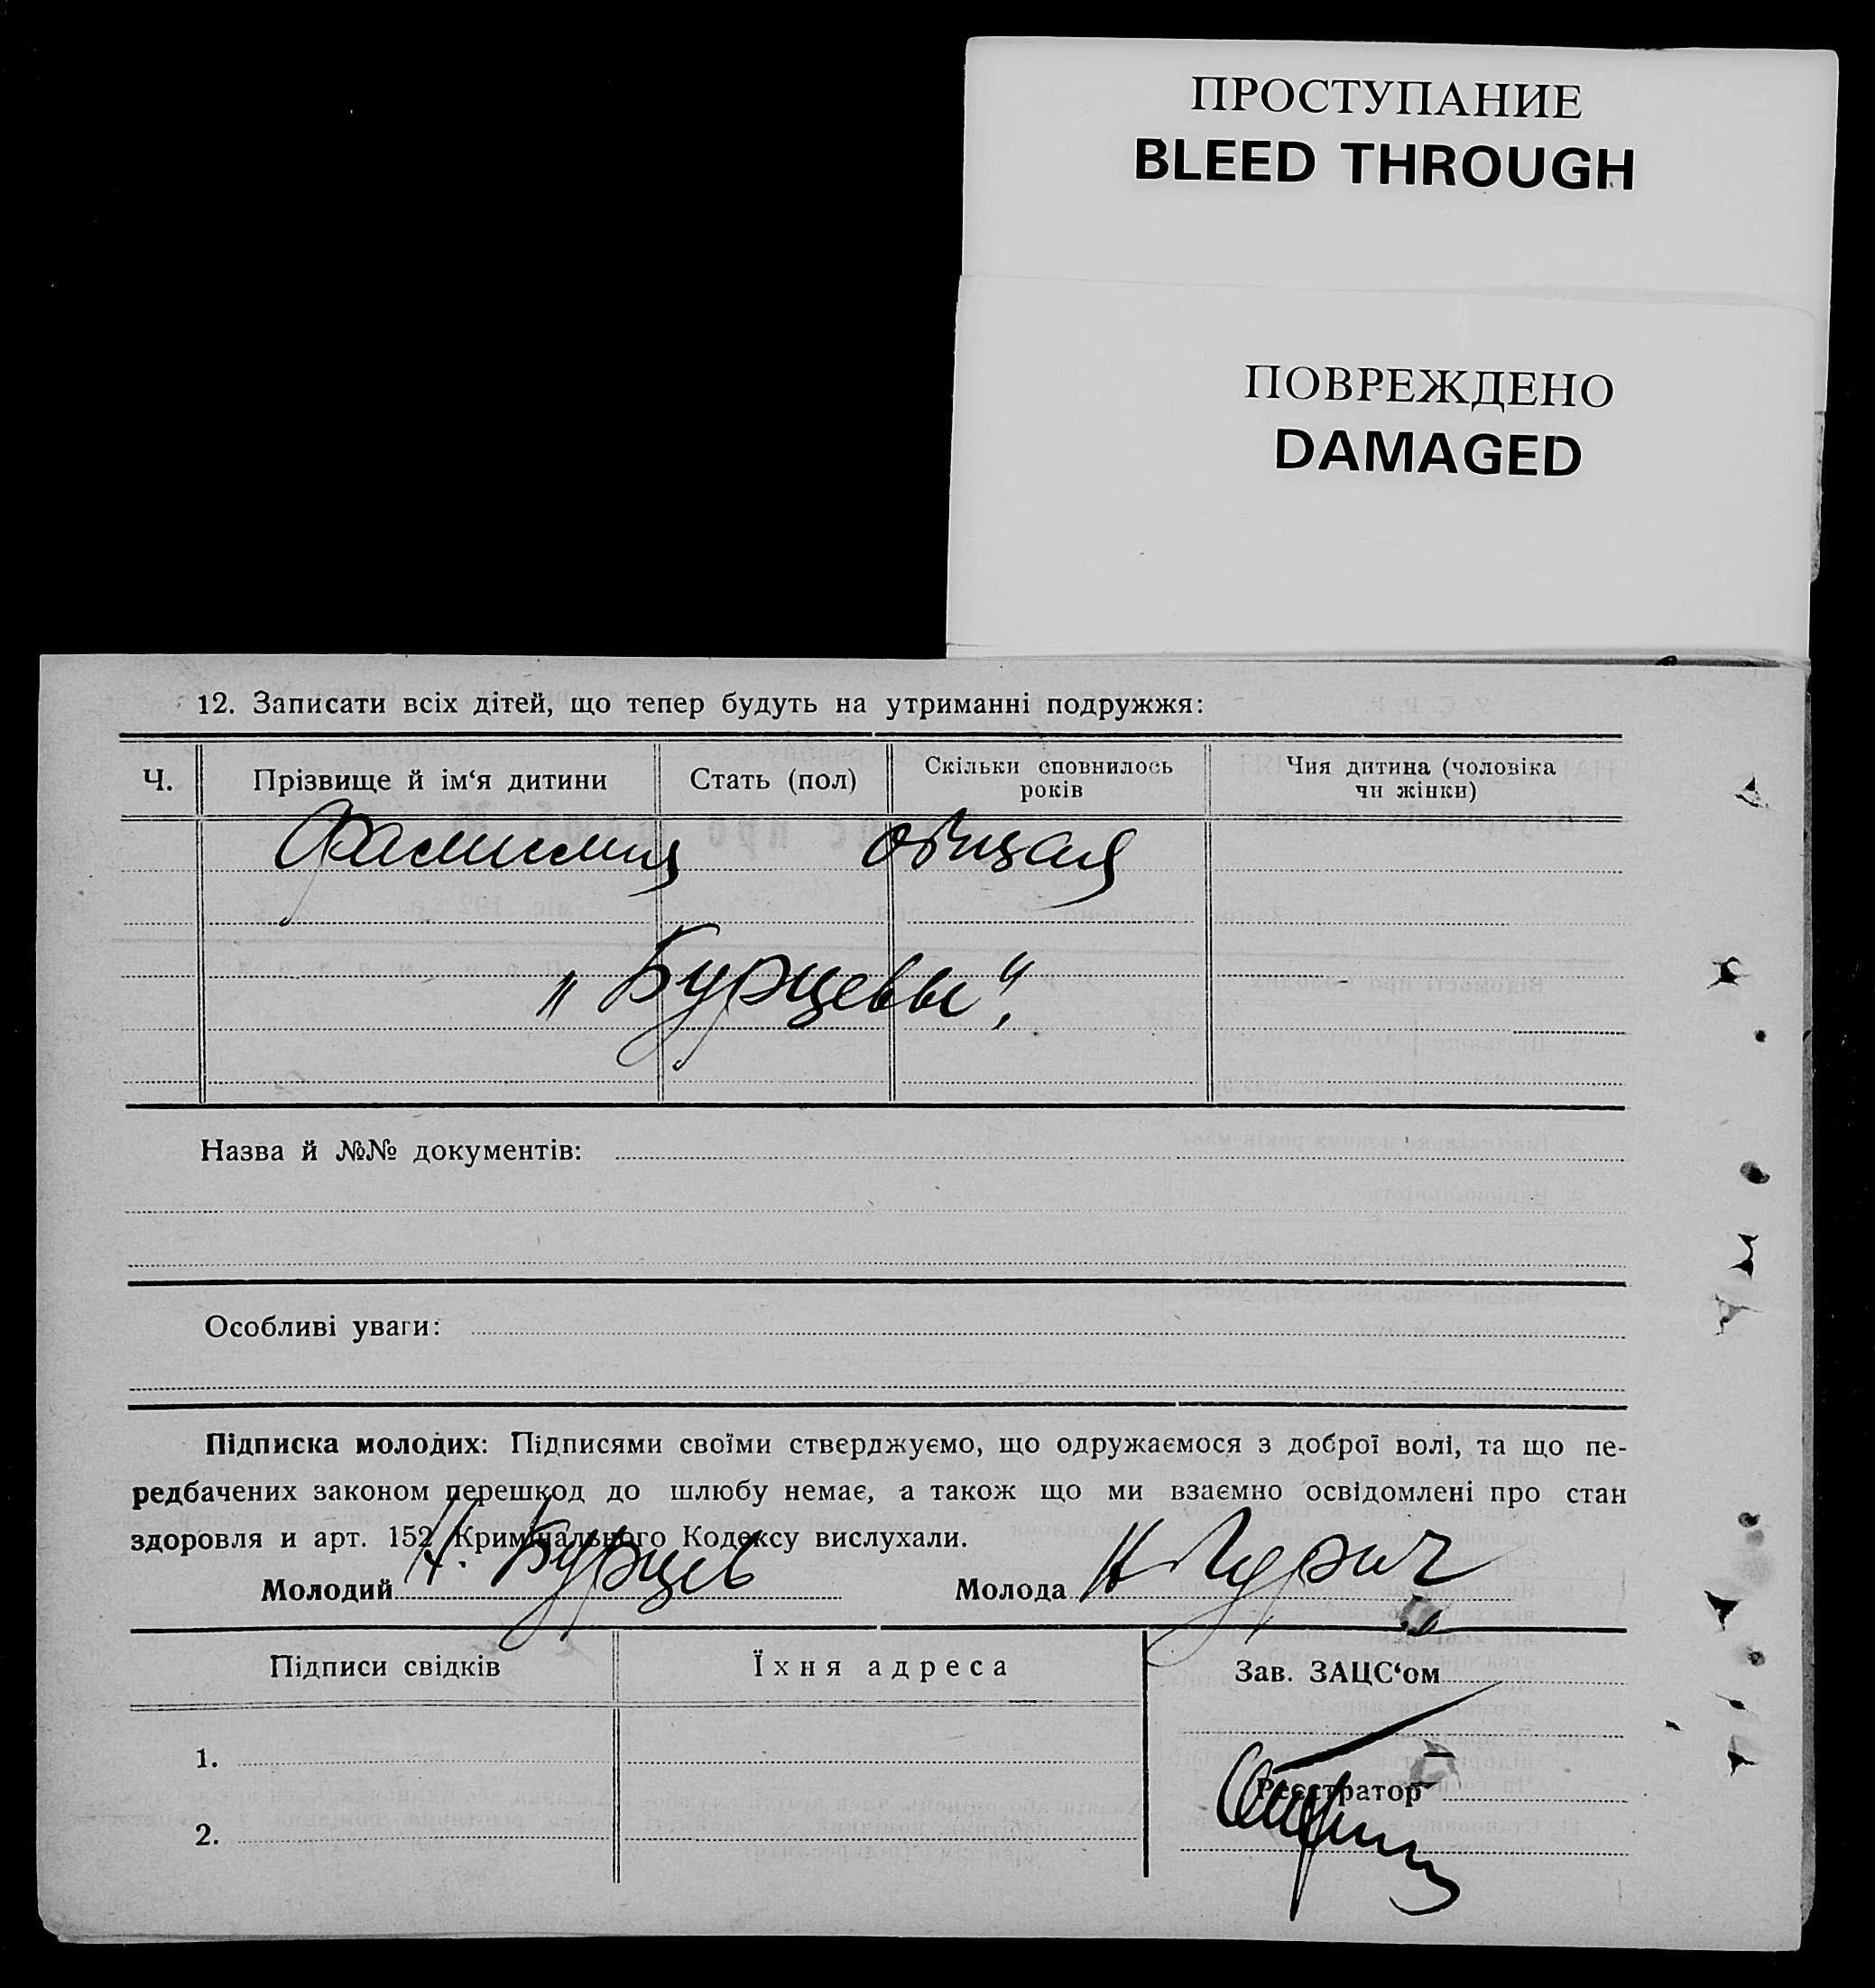 ПРОСТУПАНИЕ
BLEED THROUGH
ПОВРЕЖДЕНО
DAMAGED
12. Записати всіх дітей, що тепер будуть на утриманні подружжя:
Ч. Прізвище й ім‘я дитини Стать (пол) Скільки сповнилось років Чия дитина (чоловіка чи жінки)
Фамилия общая
„Бурцевы“.
Назва й №№ документів:
Особливі уваги:
Підписка молодих: Підписями своїми стверджуємо, що одружаємося з доброї волі, та що пе-
редбачених законом перешкод до шлюбу немає, а також що ми взаємно освідомлені про стан
здоровля и арт. 152 Кримінального Кодексу вислухали.
Молодий Н. Бурцев Молода Н Гурич
Підписи свідків Їхня адреса Зав. ЗАЦС‘ом
1.
Реєстратор
2.